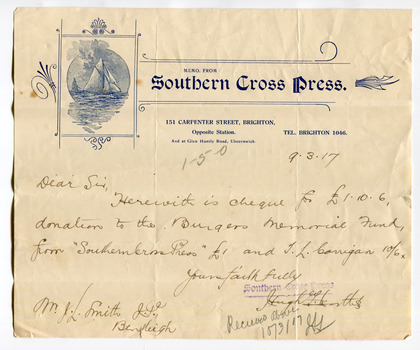 MEMO. FROM
Southern Cross Press.
151 CARPENTER STREET, BRIGHTON,
Opposite Station. TEL. BRIGHTON 1046.
And at Glen Huntly Road, Elsternwick
1-5-0
9.3.17
Dear Sir,
Herewith is cheque for £1.10.6,
donation to the Burgess Memorial Fund,
from "Southern Cross Press" £1 and T. L. Corrigan 10/6
Yours faithfully
Southern Cross Press
Mr J. L. Smith J.P.
Received above
10/3/17